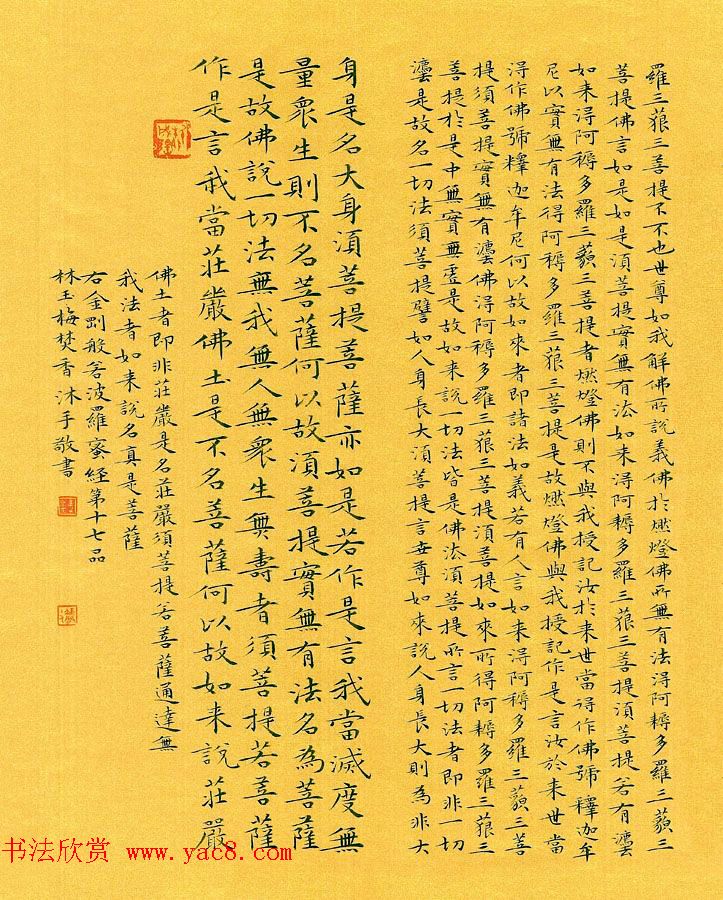 羅三藐三菩提不不也世尊如我解佛所說義佛於燃燈佛所無有法得阿耨多羅三藐三
菩提佛言如是如是須菩提實無有法如来得阿耨多羅三藐三菩提須菩提若有灋
如来得阿耨多羅三藐三菩提者燃燈佛則不與我授記汝於来世當得作佛號釋迦牟
尼以實無有法得阿耨多羅三藐三菩提是故燃燈佛與我授記作是言汝於来世當
得作佛號釋迦牟尼何以故如來者即諸法如義若有人言如来得阿耨多羅三藐三菩
提須菩提實無有灋佛得阿耨多羅三藐三菩提須菩提如來所得阿耨多羅三藐三
菩提於是中無實無虛是故如来說一切法皆是佛法須菩提所言一切法者即非一切
灋是故名一切法須菩提譬如人身長大須菩提言世尊如來說人身長大則為非大
身是名大身須菩提菩薩亦如是若作是言我當滅度無
量眾生則不名菩薩何以故須菩提實無有法名為菩薩
是故佛說一切法無我無人無眾生無壽者須菩提若菩薩
作是言我當莊嚴佛土是不名菩薩何以故如来說莊嚴
佛土者即非莊嚴是名莊嚴須菩提若菩薩通達無
我法者如来說名真是菩薩
右金剛般若波羅蜜經第十七品
林玉梅焚香沐手敬書
书法欣赏 www.yac8.com